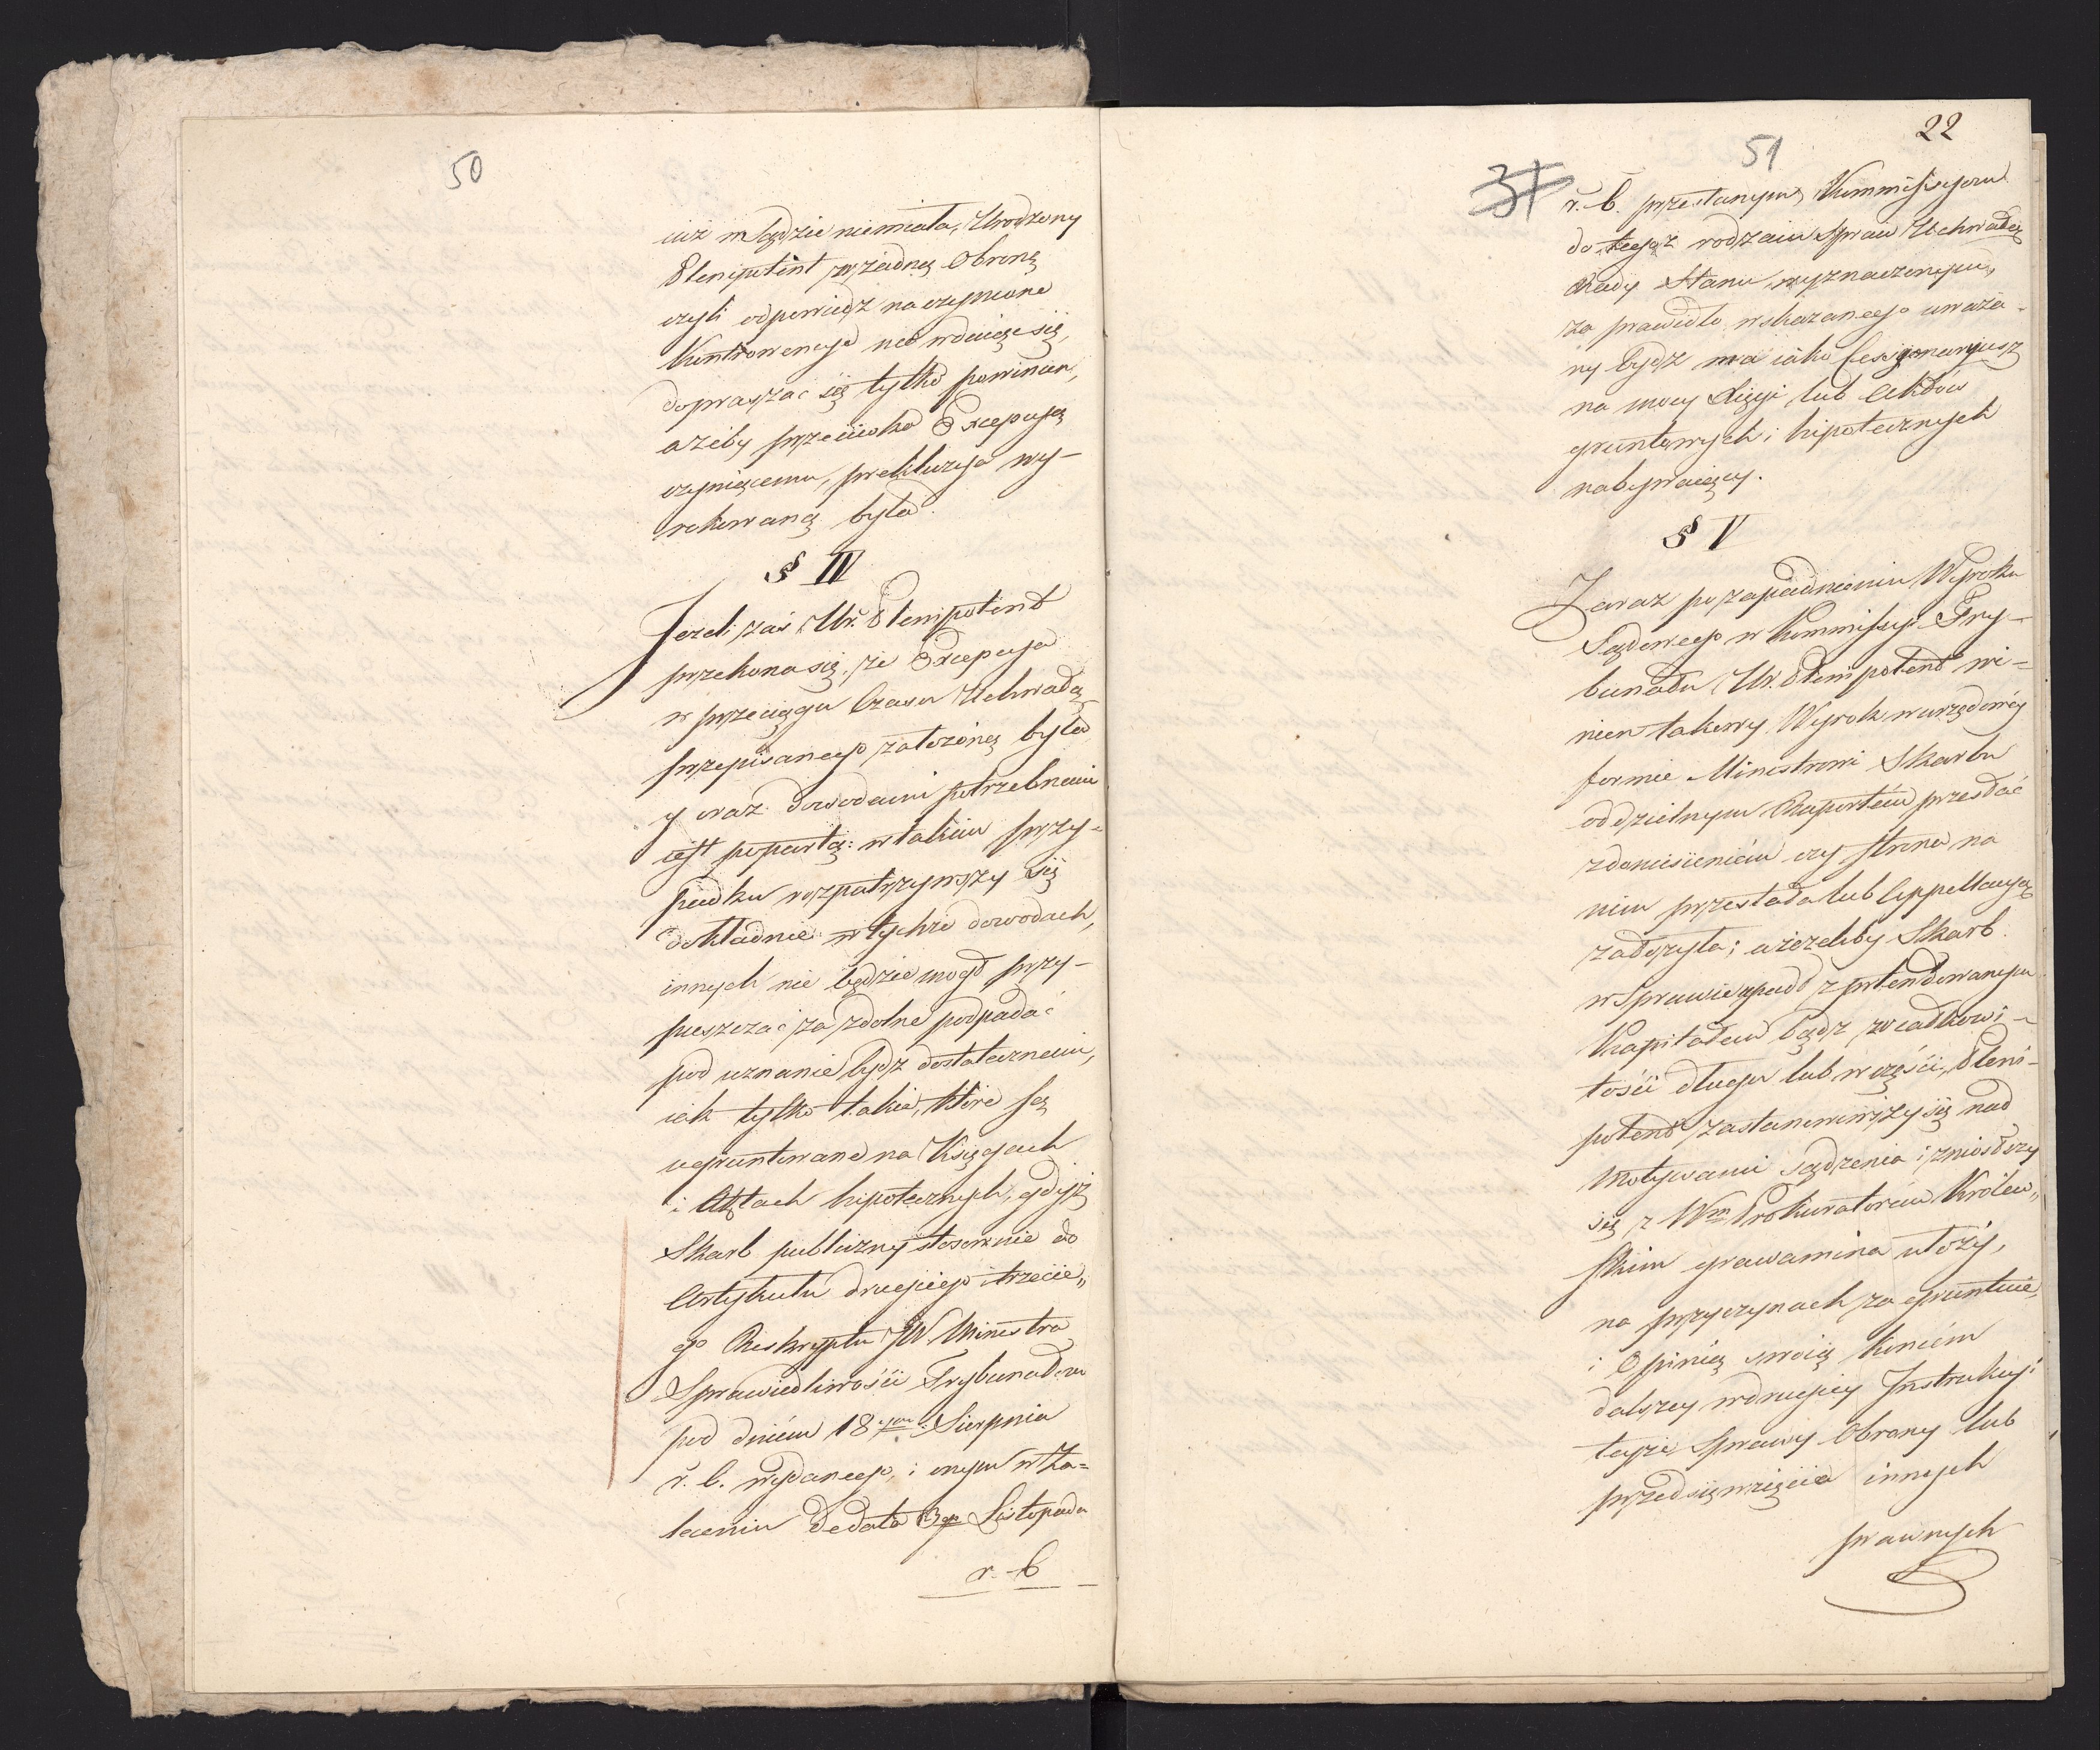 50
iuż w Sądzie niemiała, Urodzony
Plenipotent w żadną Obronę
czyli odpowiedź na czynione
Kontrowencye nie wdaiąc się,
dopraszać się tylko powinien,
ażeby przeciwko Excepcyą
czyniącemu, prekluzya wy-
rokowaną była.
§ IV
Jeżeli zaś Ur. Plenipotent
przekona się, że Excepcya
w przeciągu Czasu Uchwałą
przepisanego założoną była
y oraz dowodami potrzebnemi
iest popartą: w takim przy-
padku rozpatrzywszy się
dokładnie w tychże dowodach,
innych nie będzie mogł przy-
puszczać za zdolne podpadać
pod uznanie bydź dostatecznemi,
iak tylko takie, które są
ugruntowane na Księgach
i Aktach hipotecznych, gdyż
Skarb publiczny stosownie do
Artykułu drugiego i trzecie„
go Reskryptu JW Ministra
Sprawiedliwości Trybunałom
pod dniem 18 Sierpnia
r. b. wydanego, i onym w Za=
leceniu de dato 13go Listopada
r. b
22
51
31
r. b. przesłanym, Kommissyom
do tegoż rodzaiu Spraw Uchwałą
Rady Stanu wyznaczonym,
za prawidło wskazanego uważa-
ny bydź ma iako Cessyonaryusz
na mocy Xięgi lub Aktów
gruntowych i hipotecznych
nabywaiący.
§ V
Zaraz po zapadnieniu Wyroku
Sądowego w Kommissyi Try-
bunału Ur. Plenipotent wi-
nien takowy Wyrok w urzędowéy
formie Ministrowi Skarbu
oddzielnym Raportem przesłać
z doniesieniém czy strona na
nim przestała lub Appellacyą
założyła; a ieżeliby Skarb
w Sprawie upadł z pretendowanym
Kapitałem bądź w całkowi-
tości długu lub w części, Pleni-
potent zastanowiwszy się nad
Motywami sądzenia i zniosłszy
się z Wm Prokuratorem Królew„
skim grawamina ułoży,
na przyczynach za gruntuie,
i Opinią swoią końcém
dalszey w drugiey Instrukcyi
teyże Sprawy Obrony lub
przedsięwzięcia innych
prawnych